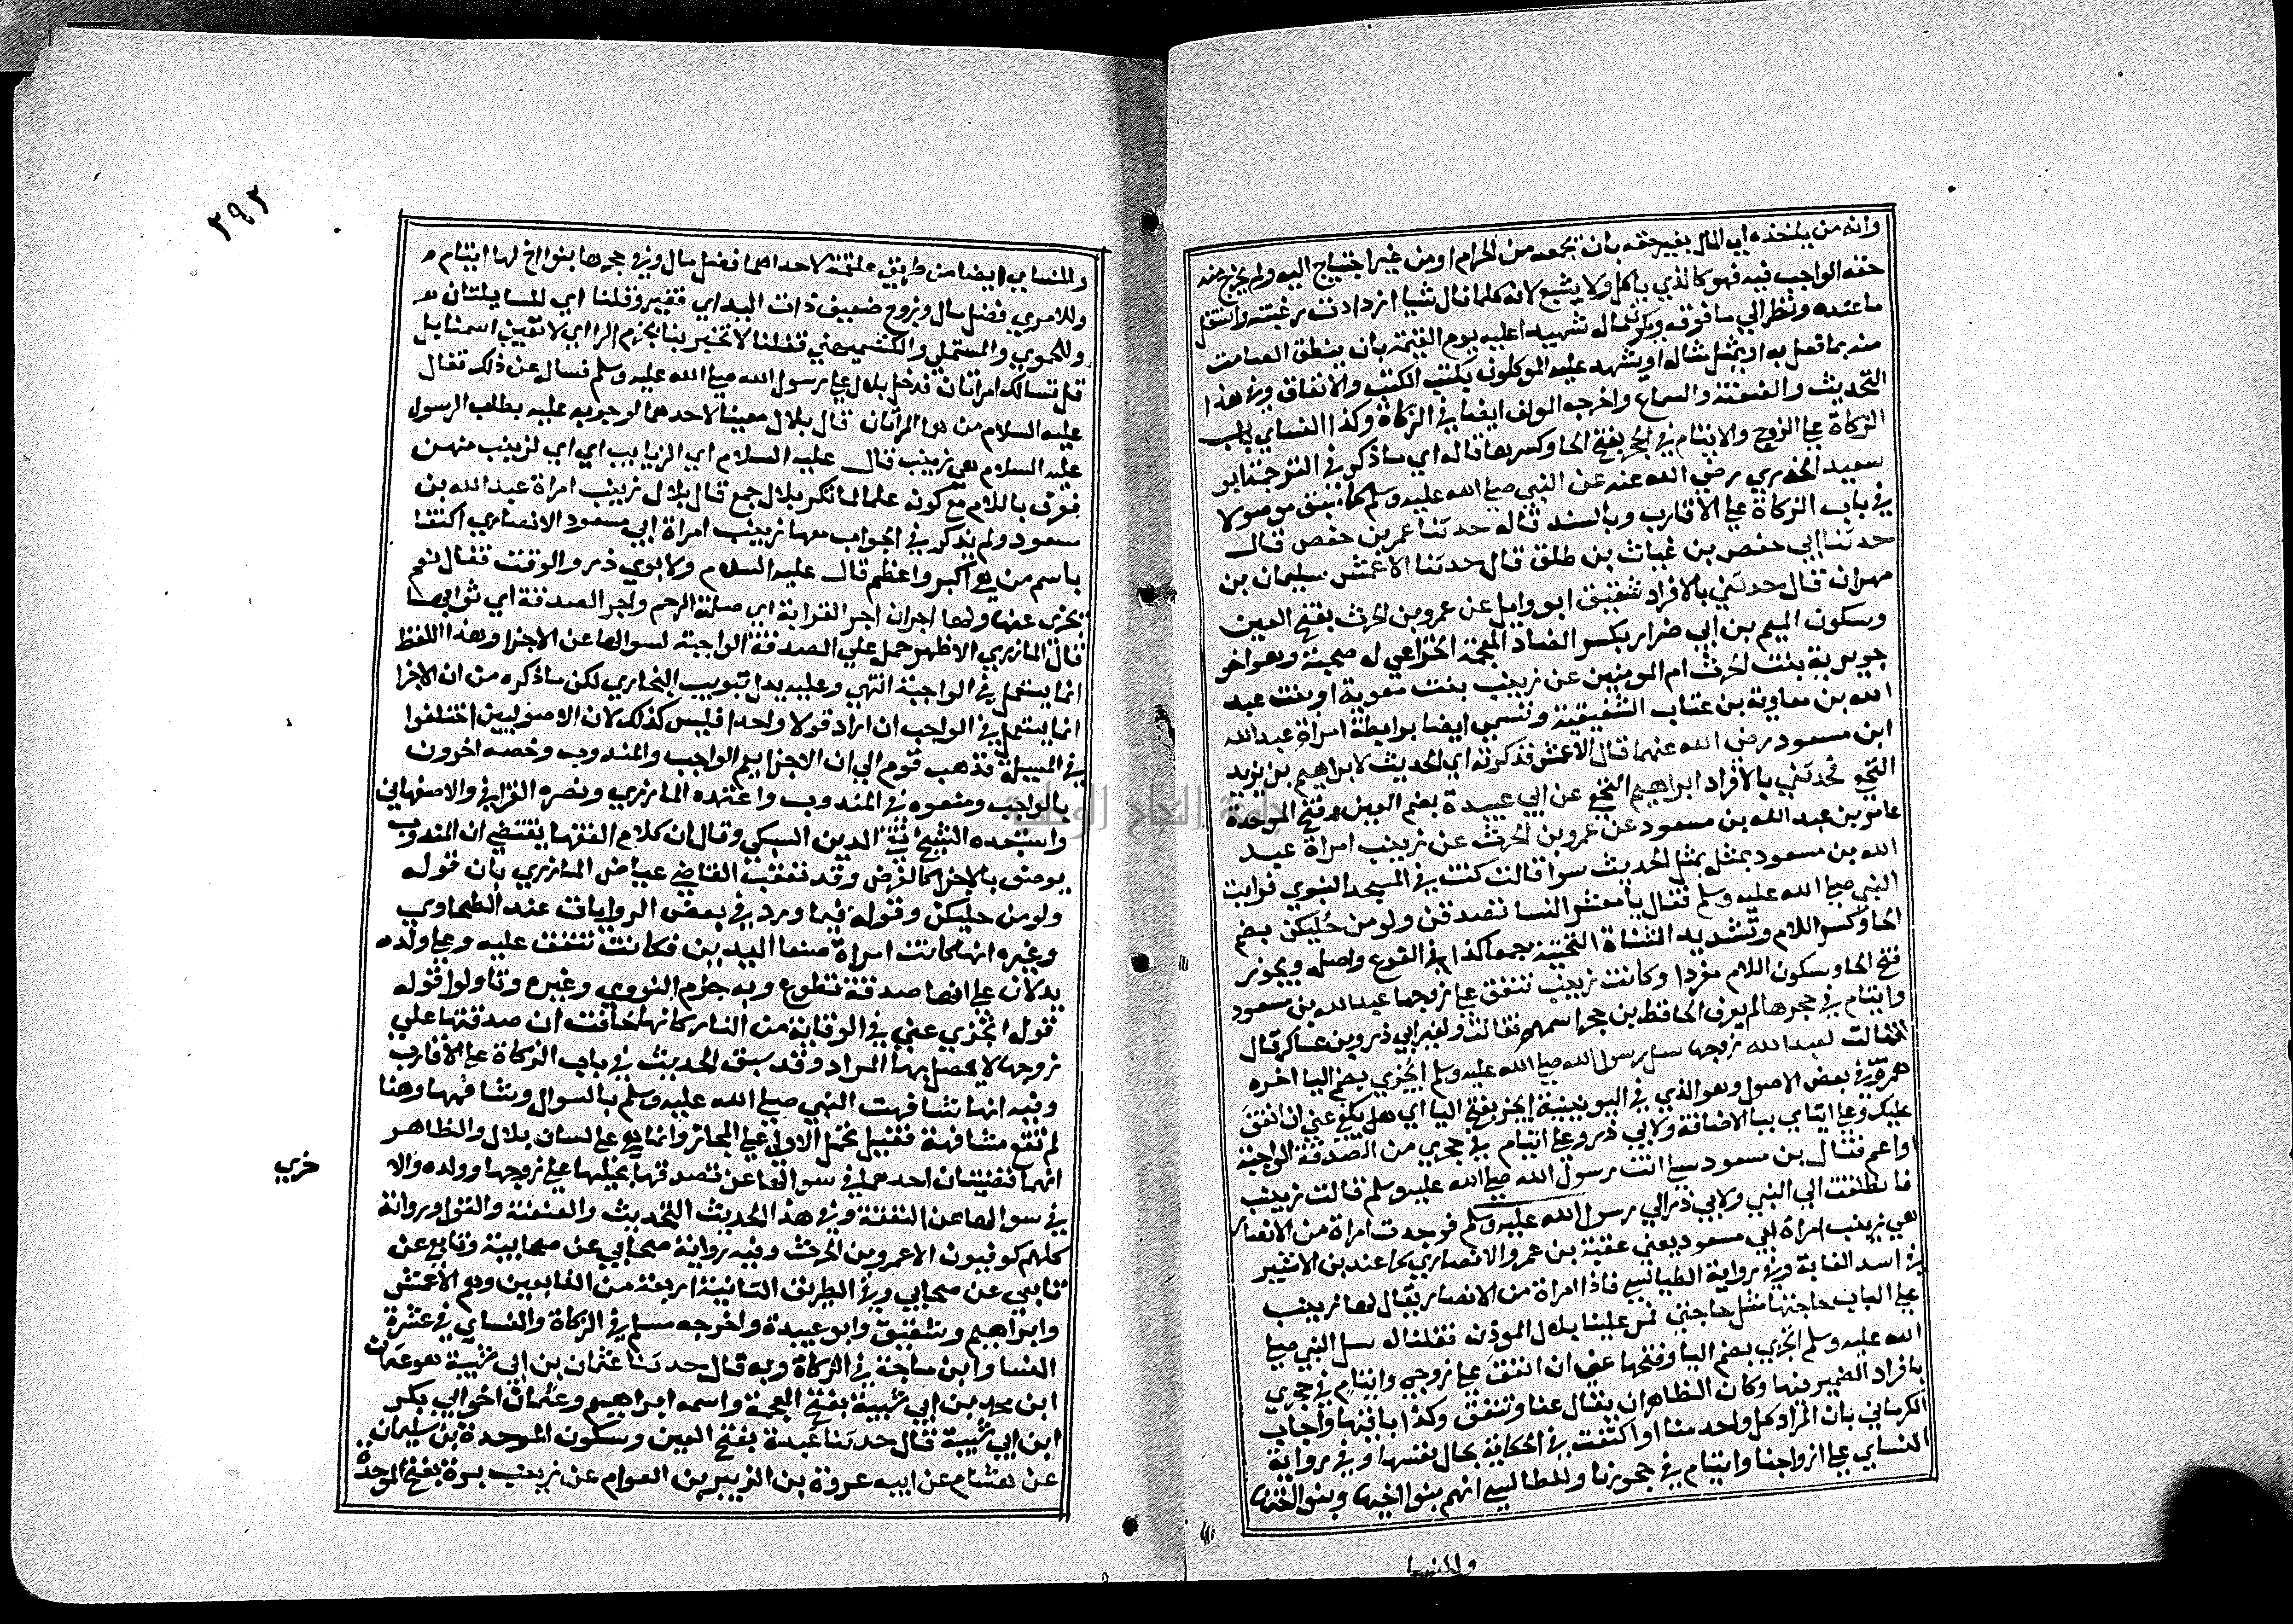 وانه من ياخذه اي المال بغير حقه بان يجمعه من الحرام او من غير احتياج اليه ولم يخرج منه
حقه الواجب فيه فهو كالذي ياكل ولا يشبع لانه كلما نال شيا ازدادت رغبته واستقل
ما عنده ونظر الي ما فوقه ويكون ماله شهيدا عليه يوم القيمة بان ينطق الصامت
منه بما فعل به او يمثل مثاله او يشهد عليه الموكلون بكتب الكتب والانفاق وفي هذا
التحديث والعنعنة والسماع واخرجه المولف ايضا في الزكاة وكذا النساي باب
الزكاة علي الزوج والايتام في الحجر بفتح الحا وكسرها قاله اي ما ذكر في الترجمة ابو
سعيد الخدري رضي الله عنه عن النبي صلي الله عليه وسلم كما سبق موصولا
في باب الزكاة علي الاقارب وبالسند قال حدثنا عمر بن حفص قال
حدثنا ابي حفص بن غياث بن طلق قال حدثنا الاعمش سليمان بن
مهران قال حدثني بالافراد شقيق ابو وايل عن عمرو بن الحرث بفتح العين
وسكون الميم بن ابي ضرار بكسر الضاد المعجمة الخزاعي له صحبة وهو اخو
جويرية بنت الحرث ام المومنين عن زينب بنت معوية او بنت عبد
الله بن معاوية بن عتاب الثقفية وتسمي ايضا برايطة امراة عبد الله
ابن مسعود رضي الله عنهما قال الاعمش فذكرته اي الحديث لابراهيم بن يزيد
النخعي فحدثني بالافراد ابراهيم النخعي عن ابي عبيدة بضم العين وفتح الموحدة
عامر بن عبد الله بن مسعود عن عمرو بن الحرث عن زينب امراة عبد
الله بن مسعود بمثله بمثل الحديث سوا قالت كنت في المسجد النبوي فرايت
النبي صلي الله عليه وسلم فقال يا معشر النسا تصدقن ولو من حليكن بضم
الحا وكسر اللام وتشديد المثناة التحتية جمعا كذا في الفرع واصله ويجوز
فتح الحا وسكون اللام مفردا وكانت زينب تنفق علي زوجها عبد الله بن مسعود
وايتام في حجرها لم يعرف الحافظ بن حجر اسمهم فقالت ولغير ابي ذر وبن عساكر قال
فقالت لعبد الله زوجها سل رسول الله صلي الله عليه وسلم ايجزي بضم اليا اخره
همزة في بعض الاصول وهو الذي في اليونينية ايجزي بفتح اليا اي هل يكفي عني ان انفق
عليك وعلي ايتامي بيا الاضافة ولابي ذر وعلي ايتام في حجري من الصدقة الواجبة
او اعم فقال بن مسعود سلي انت رسول الله صلي الله عليه وسلم قالت زينب
فانطلقت الي النبي ولابي ذر الي رسول الله عليه وسلم فوجدت امراة من الانصار
هي زينب امراة ابي مسعود يعني عقبة بن عمرو الانصاري كما عند بن الاثير
في اسد الغابة وفي رواية الطيالسي فاذا امراة من الانصار يقال لها زينب
علي الباب حاجتها مثل حاجتي فمر علينا بلال الموذن فقلنا له سل النبي صلي
الله عليه وسلم ايجزي بضم اليا وفتحها عني ان انفق علي زوجي وايتام في حجري
بافراد الضمير فيها وكان الظاهر ان يقال عنا وننفق وكذا باقيها واجاب
الكرماني بان المراد كل واحد منا او اكتفت في الحكاية بحال نفسها وفي رواية
النساي علي ازواجنا وايتام في حجورنا وللطيالسي انهم بنوا اخيها وبنوا اختها
وللنسا
٢٩٢
وللنساي ايضا من طريق علقمة لاحداهما فضل مال وفي حجرها بنوا اخ لها ايتام
وللاخري فضل مال وزوج ضعيف ذات اليد اي فقير وقلنا اي للسايلتان
وللحموي والمستملي والكشميهني فقلنا لا تخبر بنا بجزم الرا اي لا تعين اسمنا بل
قل تسالك امراتان فدخل بلال علي رسول الله صلي الله عليه وسلم فسال عن ذلك فقال
عليه السلام من هما المراتان قال بلال معينا لاحدهما لوجوبه عليه بطلب الرسول
عليه السلام هي زينب قال عليه السلام اي الزيانب اي اي لزينب منهن
فعرف باللام مع كونه علما لما نكر بلال جمع قال بلال زينب امراة عبد الله بن
مسعود ولم يذكر في الجواب معها زينب امراة ابي مسعود الانصاري اكتفا
باسم من هي اكبر واعظم قال عليه السلام ولابوي ذر والوقت فقال نعم
يجزي عنها ولها اجران اجر القرابة اي صلة الرحم واجر الصدقة اي ثوابها
قال المازري الاظهر حمل علي الصدقة الواجبة لسوالها عن الاجزا وهذا اللفظ
انما يستعمل في الواجبة انتهي وعليه يدل تبويب البخاري لكن ما ذكره من ان الاجزا
انما يستعمل في الواجب ان اراد قولا واحدا فليس كذلك لان الاصوليين اختلفوا
في المسيلة فذهب قوم الي ان الاجزا يعم الواجب والمندوب وخصه اخرون
بالواجب ومنعوه في المندوب واعتمده المازري ونصره القرافي والاصفهاني
واستبعده الشيخ تقي الدين السبكي وقال ان كلام الفقها يقتضي ان المندوب
يوصف بالاجزا كالفرض وقد تعقب القاضي عياض المازري بان قوله
ولو من حليكن وقوله فيما ورد في بعض الروايات عند الطحاوي
وغيره انها كانت امراة صنعا اليدين فكانت تنفق عليه وعلي ولده
يدلان علي انها صدقة تطوع وبه جزم النووي وغيره وتاولوا قوله
قوله اتجزي عني في الوقاية من النار كانها خافت ان صدقتها علي
زوجها لا يحصل بها المراد وقد سبق الحديث في باب الزكاة علي الاقارب
وفيه انها شافهت النبي صلي الله عليه وسلم بالسوال وشافهها وهنا
لم تقع مشافهة فقيل تحمل الاولي علي المجاز وانما هي علي لسان بلال والظاهر
انهما قضيتان احدهما في سوالها عن تصدقها بحليها علي زوجها وولده والا
خري
في سوالها عن النفقة وفي هذا الحديث التحديث والعنعنة والقول ورواته
كلهم كوفيون الا عمرو بن الحرث وفيه رواية صحابي عن صحابية وتابعي عن
تابعي عن صحابي وفي الطريق الثانية اربعة من التابعين وهم الاعمش
وابراهيم وشقيق وابو عبيدة واخرجه مسلم في الزكاة والنساي في عشرة
النسا وابن ماجة في الزكاة وبه قال حدثنا عثمان بن ابي شيبة هو عثمان
ابن محمد بن ابي شيبة بفتح المعجمة واسمه ابراهيم وعثمان اخو ابي بكر
ابن ابي شيبة قال حدثنا عبدة بفتح العين وسكون الموحدة بن سليمان
عن هشام عن ابيه عروة بن الزبير بن العوام عن زينب برة بفتح الموحدة
جامعة النجاح الوطنية